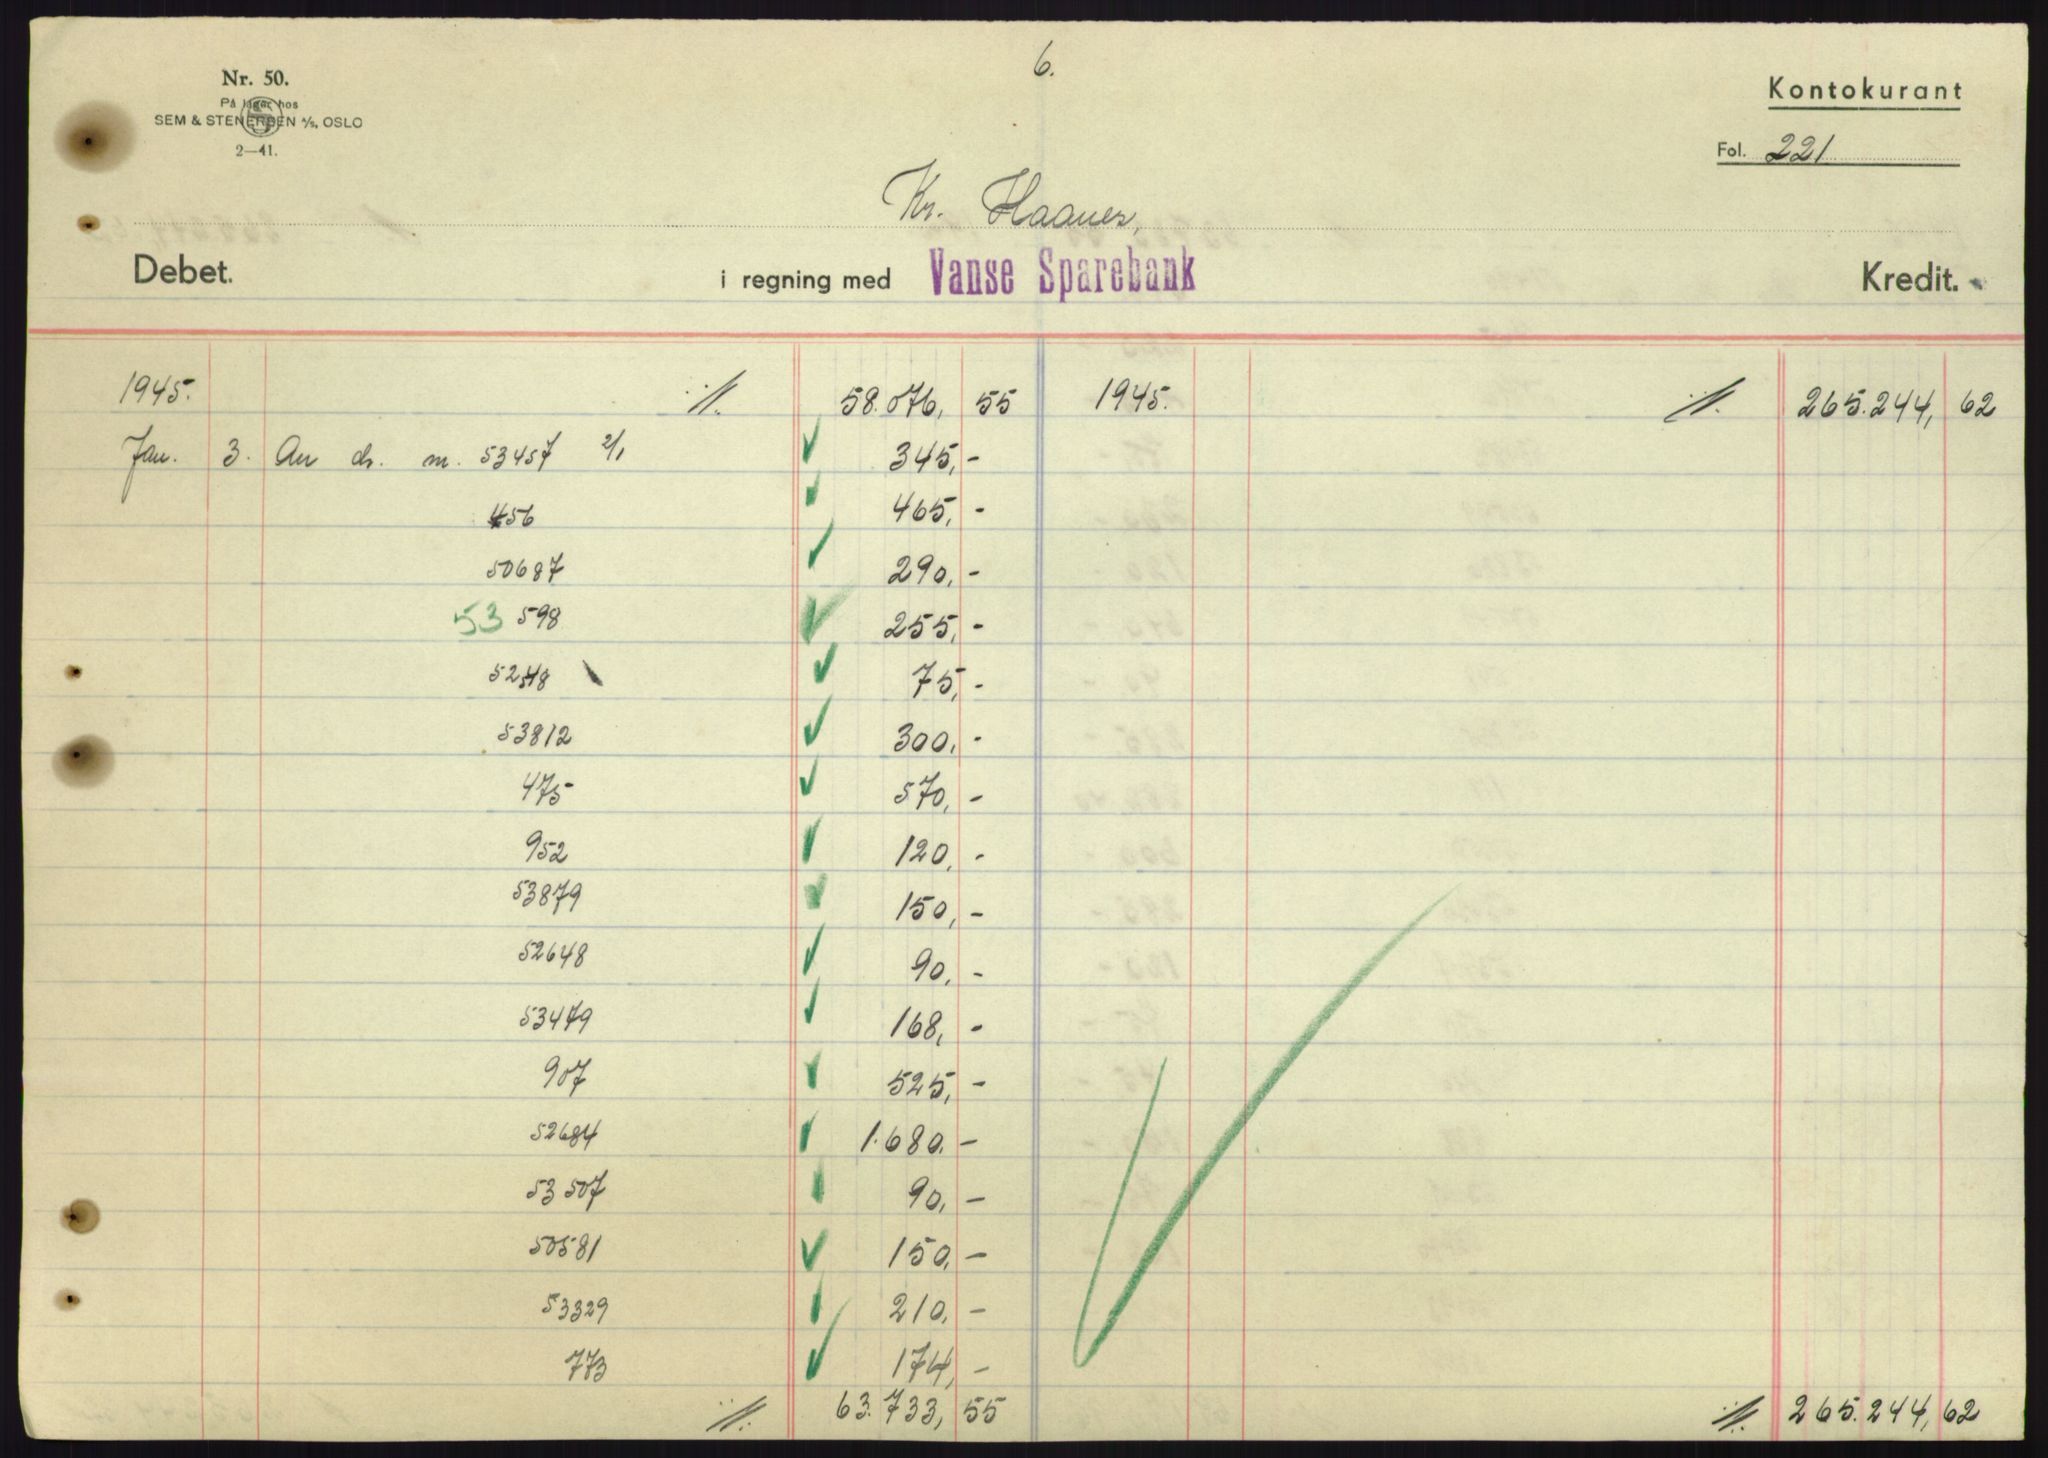 6.
Nr. 50.
På lager hos
SEM & STENERSEN A/S, OSLO
2—41.
Kontokurant
Fol. 221
Kr. Haanes,
Debet. i regning med Vanse Sparebank Kredit.
1945. ·/. 58.076, 55 1945. ·/. 265.244, 62
Jan. 3. An ch. m. 53457 2/1 345, -
456 465, -
50687 290, -
53 598 255, -
52548 75, -
53812 300, -
475 570, -
952 120, -
53879 150, -
52648 90, -
53479 168, -
907 525, -
52684 1.680. -
53507 90, -
50581 150, -
53329 210, -
773 174, -
·/. 63.733, 55 ·/. 265.244, 62